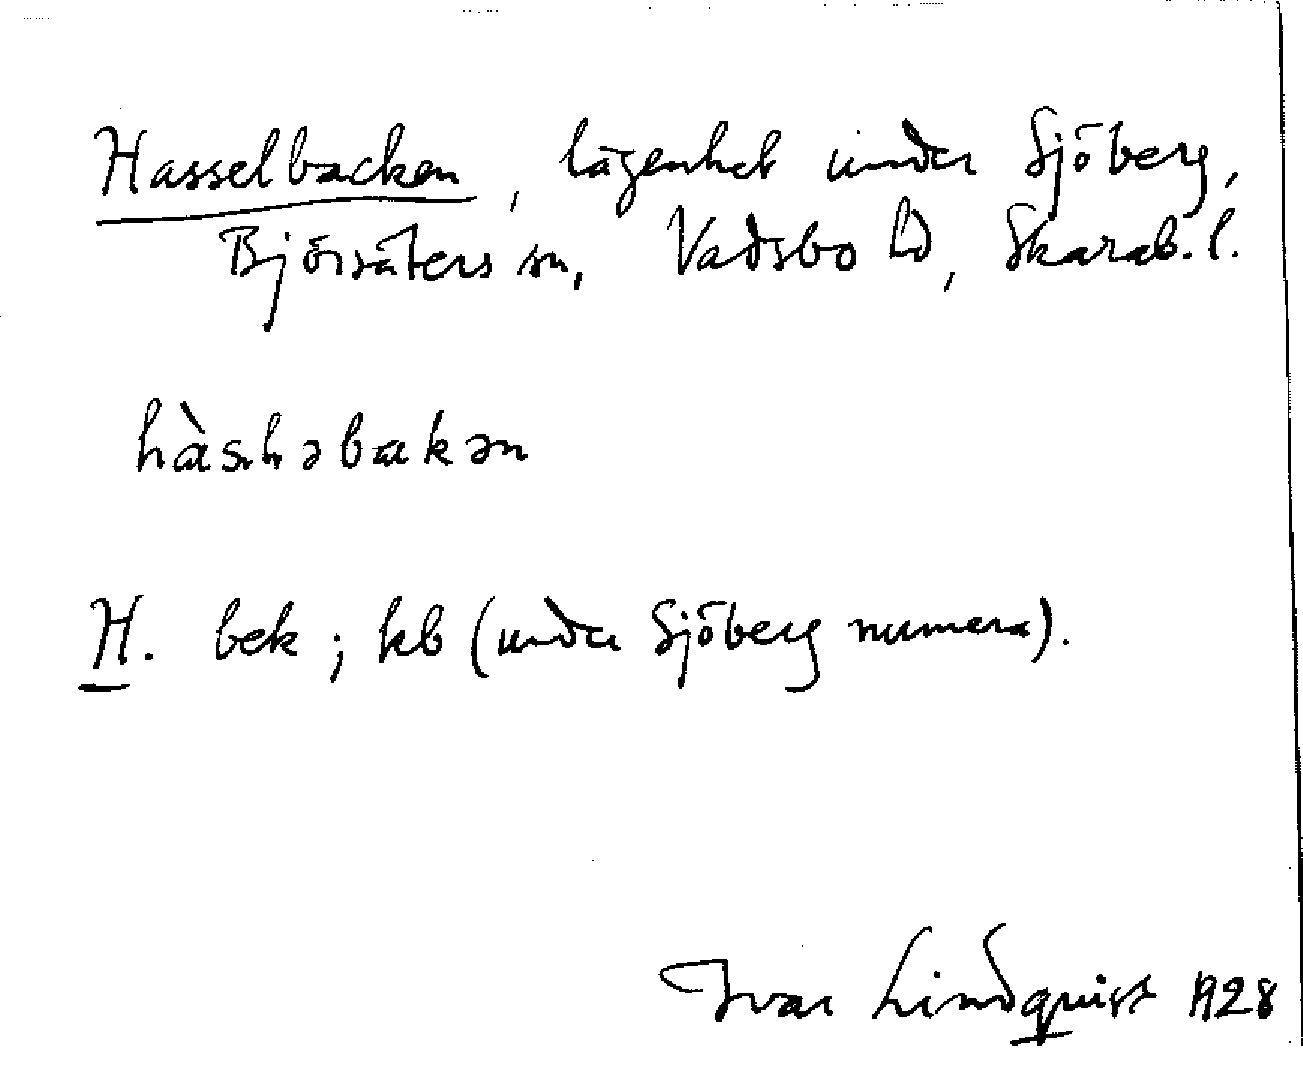 Hasselbacken, lägenhet under Sjöberg,
Björsäters sn, Vadsbo hd, Skarab. l.
H. bek; kb (under Sjöberg numera).
Ivar Lindquist 1928